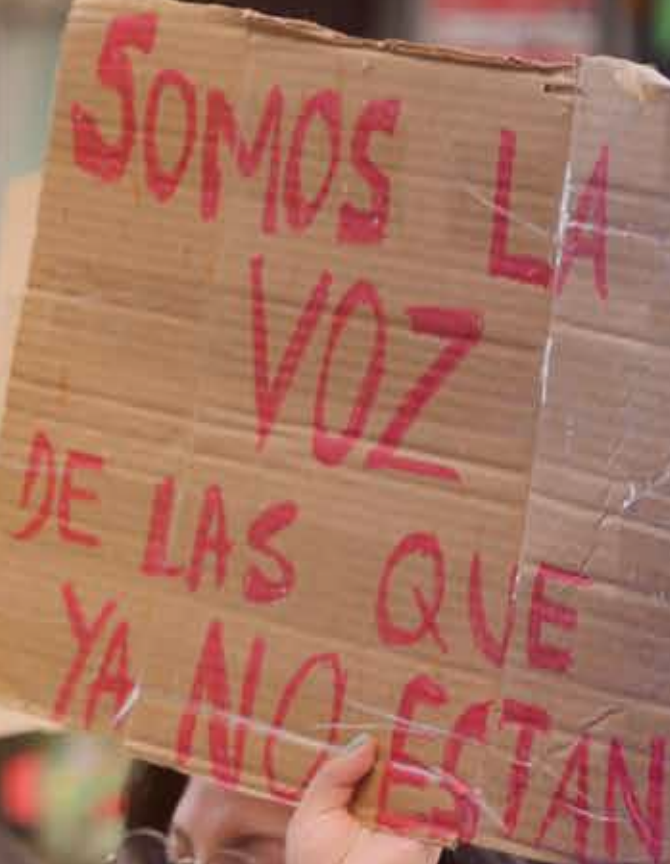 SOMOS LA
VOZ
DE LAS QUE
YA NO ESTÁN